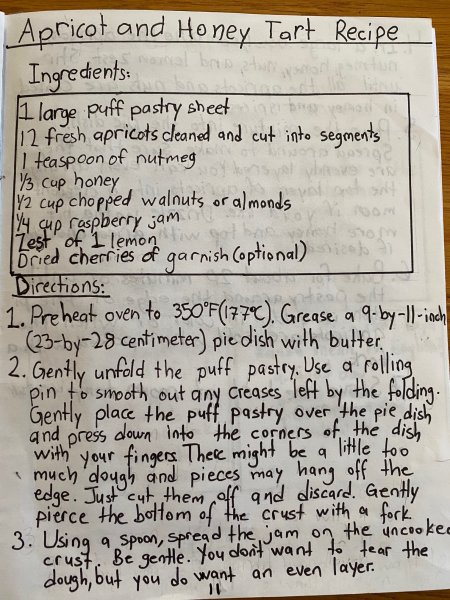 Apricot and Honey Tart Recipe
Ingredients:
1 large puff pastry sheet
12 fresh apricots cleaned and cut into segments
1 teaspoon of nutmeg
1/3 cup honey
1/2 cup chopped walnuts or almonds
1/4 cup raspberry jam
Zest of 1 lemon
Dried cherries of garnish (optional)
Directions:
1. Preheat oven to 350°F(177°C). Grease a 9-by-11-inch
(23-by-28 centimeter) pie dish with butter.
2. Gently unfold the puff pastry. Use a rolling
pin to smooth out any creases left by the folding.
Gently place the puff pastry over the pie dish
and press down into the corners of the dish
with your fingers. There might be a little too
much dough and pieces may hang off the
edge. Just cut them off and discard. Gently
pierce the bottom of the crust with a fork
3. Using a spoon, spread the jam on the uncooked
crust. Be gentle. You don't want to tear the
dough, but you do want an even layer.
11